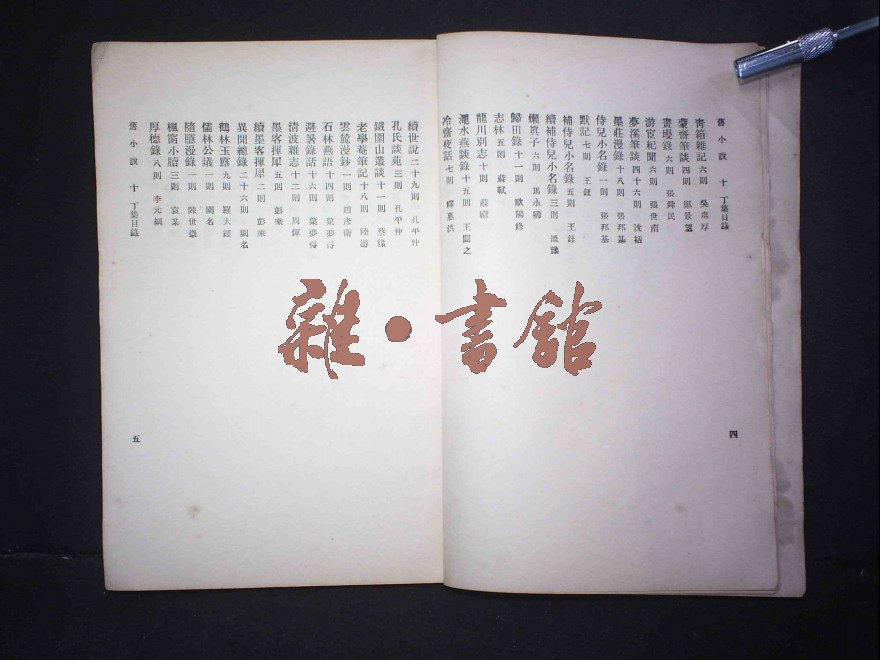 舊小說 十 丁集目錄
青箱雜記六則 吳處厚
蒙齋筆談四則 鄭景望
畫墁錄六則 張舜民
游宦紀聞六則 張世南
夢溪筆談四十六則 沈括
墨莊漫錄十八則 張邦基
侍兒小名錄一則 張邦基
默記七則 王銍
補侍兒小名錄五則 王銍
續補侍兒小名錄三則 溫豫
嬾真子六則 馬永卿
歸田錄十一則 歐陽修
志林五則 蘇軾
龍川別志十則 蘇轍
澠水燕談錄十五則 王闢之
冷齋夜話七則 釋惠洪
四
續世說二十九則 孔平仲
孔氏談苑三則 孔平仲
鐵圍山叢談十一則 蔡絛
老學菴筆記十八則 陸游
雲麓漫鈔一則 趙彥衛
石林燕語十四則 葉夢得
避暑錄話十六則 葉夢得
清波雜志十二則 周煇
墨客揮犀五則 彭乘
續墨客揮犀二則 彭乘
異聞總錄二十六則 闕名
鶴林玉露九則 羅大經
儒林公議一則 闕名
隨隱漫錄一則 陳世崇
楓窗小牘三則 袁某
厚德錄八則 李元綱
舊小說 十 丁集目錄
五
雜·書館